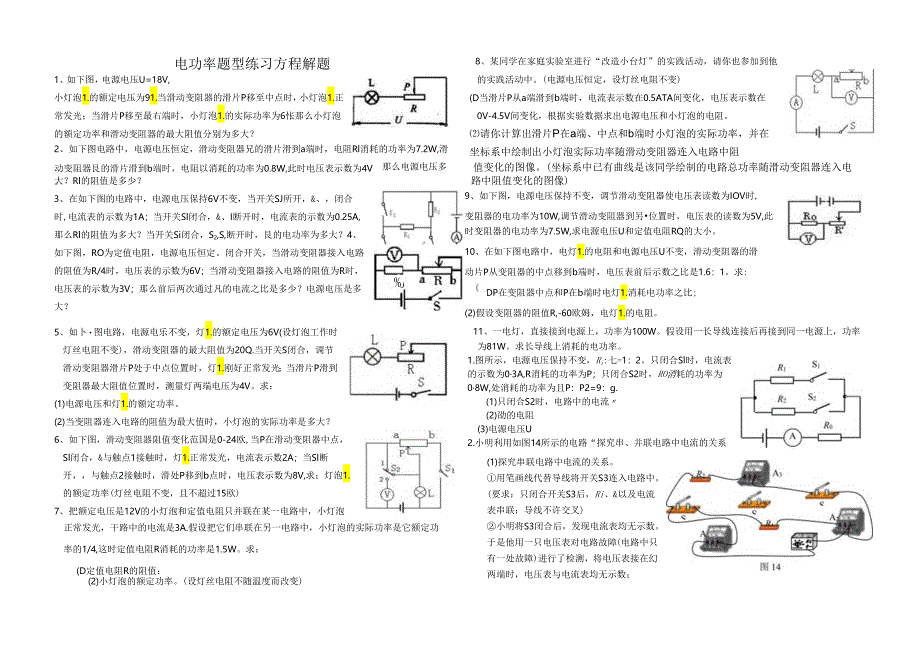 电功率题型练习方程解题
1、如下图，电源电压U=18V,
小灯泡1.的额定电压为91.当滑动变阻器的滑片P移至中点时，小灯泡1.正
常发光；当滑片P移至最右端时，小灯泡1.的实际功率为6怅那么小灯泡
的额定功率和滑动变阻器的最大阻值分别为多大？
2、如下图电路中，电源电压恒定，滑动变阻器兄的滑片滑到a端时，电阻RI消耗的功率为7.2W,滑
动变阻器艮的滑片滑到b端时，电阻以消耗的功率为0.8W,此时电压表示数为4V 那么电源电压多
大？RI的阻值是多少？
3、在如下图的电路中，电源电压保持6V不变，当开关SJ所开，&、，闭合
时，电流表的示数为1A；当开关SI闭合，&、I断开时，电流表的示数为0.25A,
那么RI的阻值为多大？当开关Si闭合，S₂,S,断开时，艮的电功率为多大？4、
如下图，RO为定值电阻，电源电压恒定。闭合开关，当滑动变阻器接入电路
的阻值为R/4时，电压表的示数为6V；当滑动变阻器接入电路的阻值为R时，
电压表的示数为3V；那么前后两次通过凡的电流之比是多少？电源电压是多
大？
5、如卜•图电路，电源电乐不变，灯1.的额定电压为6V(设灯泡工作时
灯丝电阻不变)，滑动变阻器的最大阻值为20Q.当开关S闭合，调节
滑动变阻器滑片P处于中点位置时，灯1.刚好正常发光；当滑片P滑到
变阻器最大阻值位置时，测量灯两端电压为4V。求：
(1)电源电压和灯1.的额定功率。
(2)当变阻器连入电路的阻值为最大值时，小灯泡的实际功率是多大？
6、如下图，滑动变阻器阻值变化范围是0-24欧，当P在滑动变阻器中点，
SI闭合，&与触点1接触时，灯1.正常发光，电流表示数2A；当SI断
开，，与触点2接触时，滑处P移到b点时，电压表示数为8V,求：灯泡1.
的额定功率(灯丝电阻不变，且不超过15欧)
7、把额定电压是12V的小灯泡和定值电阻只并联在某一电路中，小灯泡
正常发光，干路中的电流是3A.假设把它们串联在另一电路中，小灯泡的实际功率是它额定功
率的1/4,这时定值电阻R消耗的功率是1.5W。求：
(D定值电阻R的阻值：
(2)小灯泡的额定功率。(设灯丝电阻不随温度而改变)
8、某同学在家庭实验室进行“改造小台灯”的实践活动，请你也参加到他
的实践活动中。(电源电压恒定，设灯丝电阻不变)
(D当滑片P从a端滑到b端时，电流表示数在0.5ATA间变化，电压表示数在
0V-4.5V间变化，根据实验数据求出电源电压和小灯泡的电阻。
⑵请你计算出滑片P在a端、中点和b端时小灯泡的实际功率，并在
坐标系中绘制出小灯泡实际功率随滑动变阻器连入电路中阻
值变化的图像。(坐标系中已有曲线是该同学绘制的电路总功率随滑动变阻器连入电
路中阻值变化的图像)
9、如下图，电源电压保持不变，调节滑动变阻器使电压表读数为IOV时，
变阻器的电功率为10W,调节滑动变阻器到另•位置时，电压表的读数为5V,此
时变阻器的电功率为7.5W,求电源电压U和定值电阻RQ的大小。
10、在如下图电路中，电灯1.的电阻和电源电压U不变，滑动变阻器的滑
动片P从变阻器的中点移到b端时，电压表前后示数之比是1.6：1，求：
(
DP在变阻器中点和P在b端时电灯1.消耗电功率之比；
(2)假设变阻器的阻值R,-60欧姆，电灯1.的电阻。
11、一电灯，直接接到电源上，功率为100W。假设用一长导线连接后再接到同一电源上，功率
为81W。求长导线上消耗的电功率。
1.图所示，电源电压保持不变，R,:七=1：2。只闭合SI时，电流表
的示数为0∙3A,R消耗的功率为P；只闭合S2时，RO消耗的功率为
0∙8W,处消耗的功率为且P：P2=9：g.
(1)只闭合S2时，电路中的电流〃
(2)劭的电阻
(3)电源电压U
2.小明利用如图14所示的电路“探究串、并联电路中电流的关系
(1)探究串联电路中电流的关系。
①用笔画线代替导线将开关S3连入电路中。
(要求：只闭合开关S3后，Ri、&以及电流
表串联；导线不许交叉)
②小明将S3闭合后，发现电流表均无示数。
于是他用一只电压表对电路故障(电路中只
有一处故障)进行了检测，将电压表接在幻
两端时，电压表与电流表均无示数；
图14